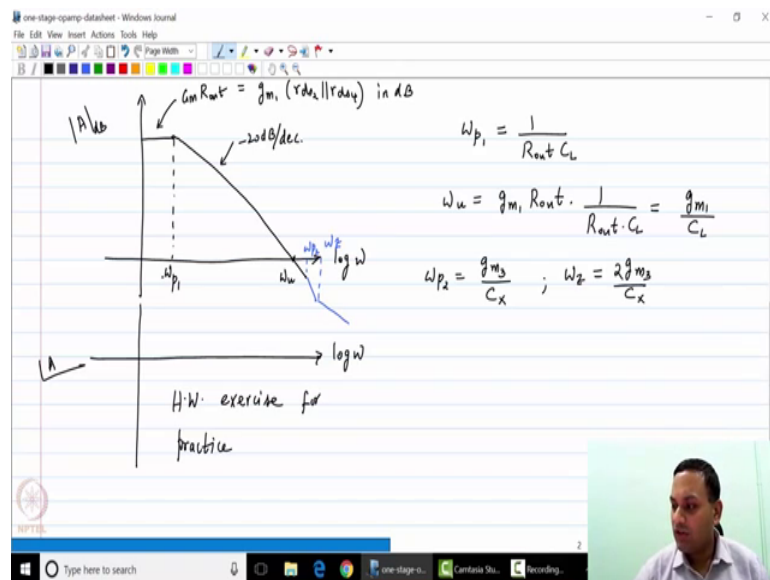 one-stage-opamp-datasheet - Windows Journal
File Edit View Insert Actions Tools Help
Page Width
B I
|A|dB
Gm Rout = gm1 (rds2 || rds4) in dB
-20dB/dec.
ωp1
ωu
ωp2 ωz
log ω
ωp1 = 1 / (Rout CL)
ωu = gm1 Rout · 1 / (Rout · CL) = gm1 / CL
ωp2 = gm3 / Cx ; ωz = 2gm3 / Cx
∠A
log ω
H.W. exercise for
practice
NPTEL
2
Type here to search
one-stage-o...
Camtasia Stu...
Recording...